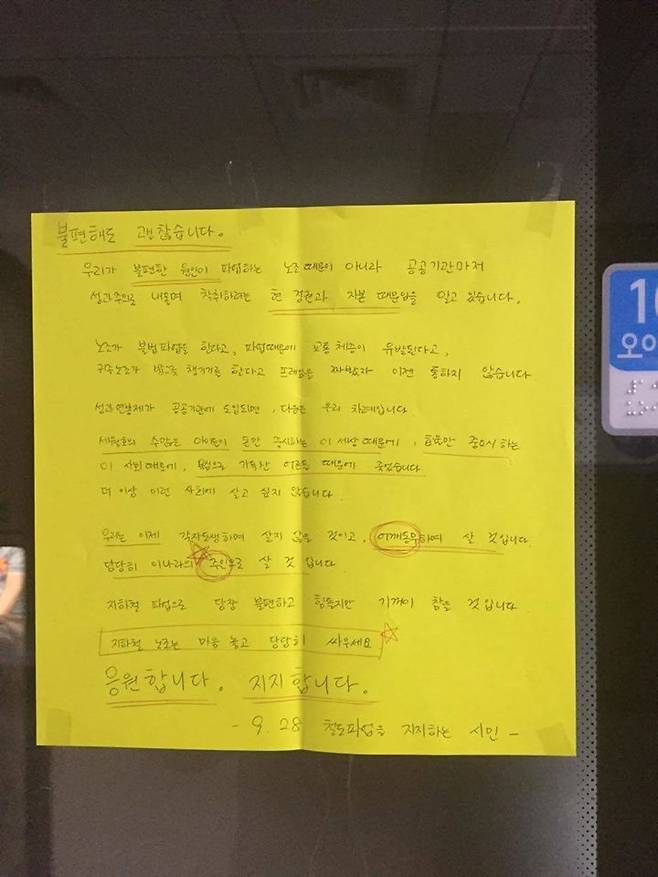 불편해도 괜찮습니다.
우리가 불편한 원인이 파업하는 노조 때문이 아니라 공공기관마저
성과주의로 내몰며 착취하려는 현 정권과 자본 때문임을 알고 있습니다.
노조가 불법파업을 한다고, 파업때문에 교통체증이 유발된다고,
귀족노조가 밥그릇 챙기기를 한다고 프레임을 짜봤자 이젠 통하지 않습니다
성과연봉제가 공공기관에 도입되면, 다음은 우리 차례입니다
세월호의 수많은 아이들이 돈만 중시하는 이 세상 때문에, 효율만 중요시 하는
이 사회 때문에, 탐욕으로 가득찬 어른들 때문에 죽었습니다
더 이상 이런 사회에 살고 싶지 않습니다.
우리는 이제 각자도생하며 살지 않을 것이고, 어깨동무하며 살 것입니다
당당히 이나라의 주인으로 살 것 입니다.
지하철 파업으로 당장 불편하고 힘들지만 기꺼이 참을 것입니다.
지하철 노조는 마음 놓고 당당히 싸우세요
응원합니다. 지지합니다.
- 9.28 철도파업을 지지하는 시민 -
10
오이